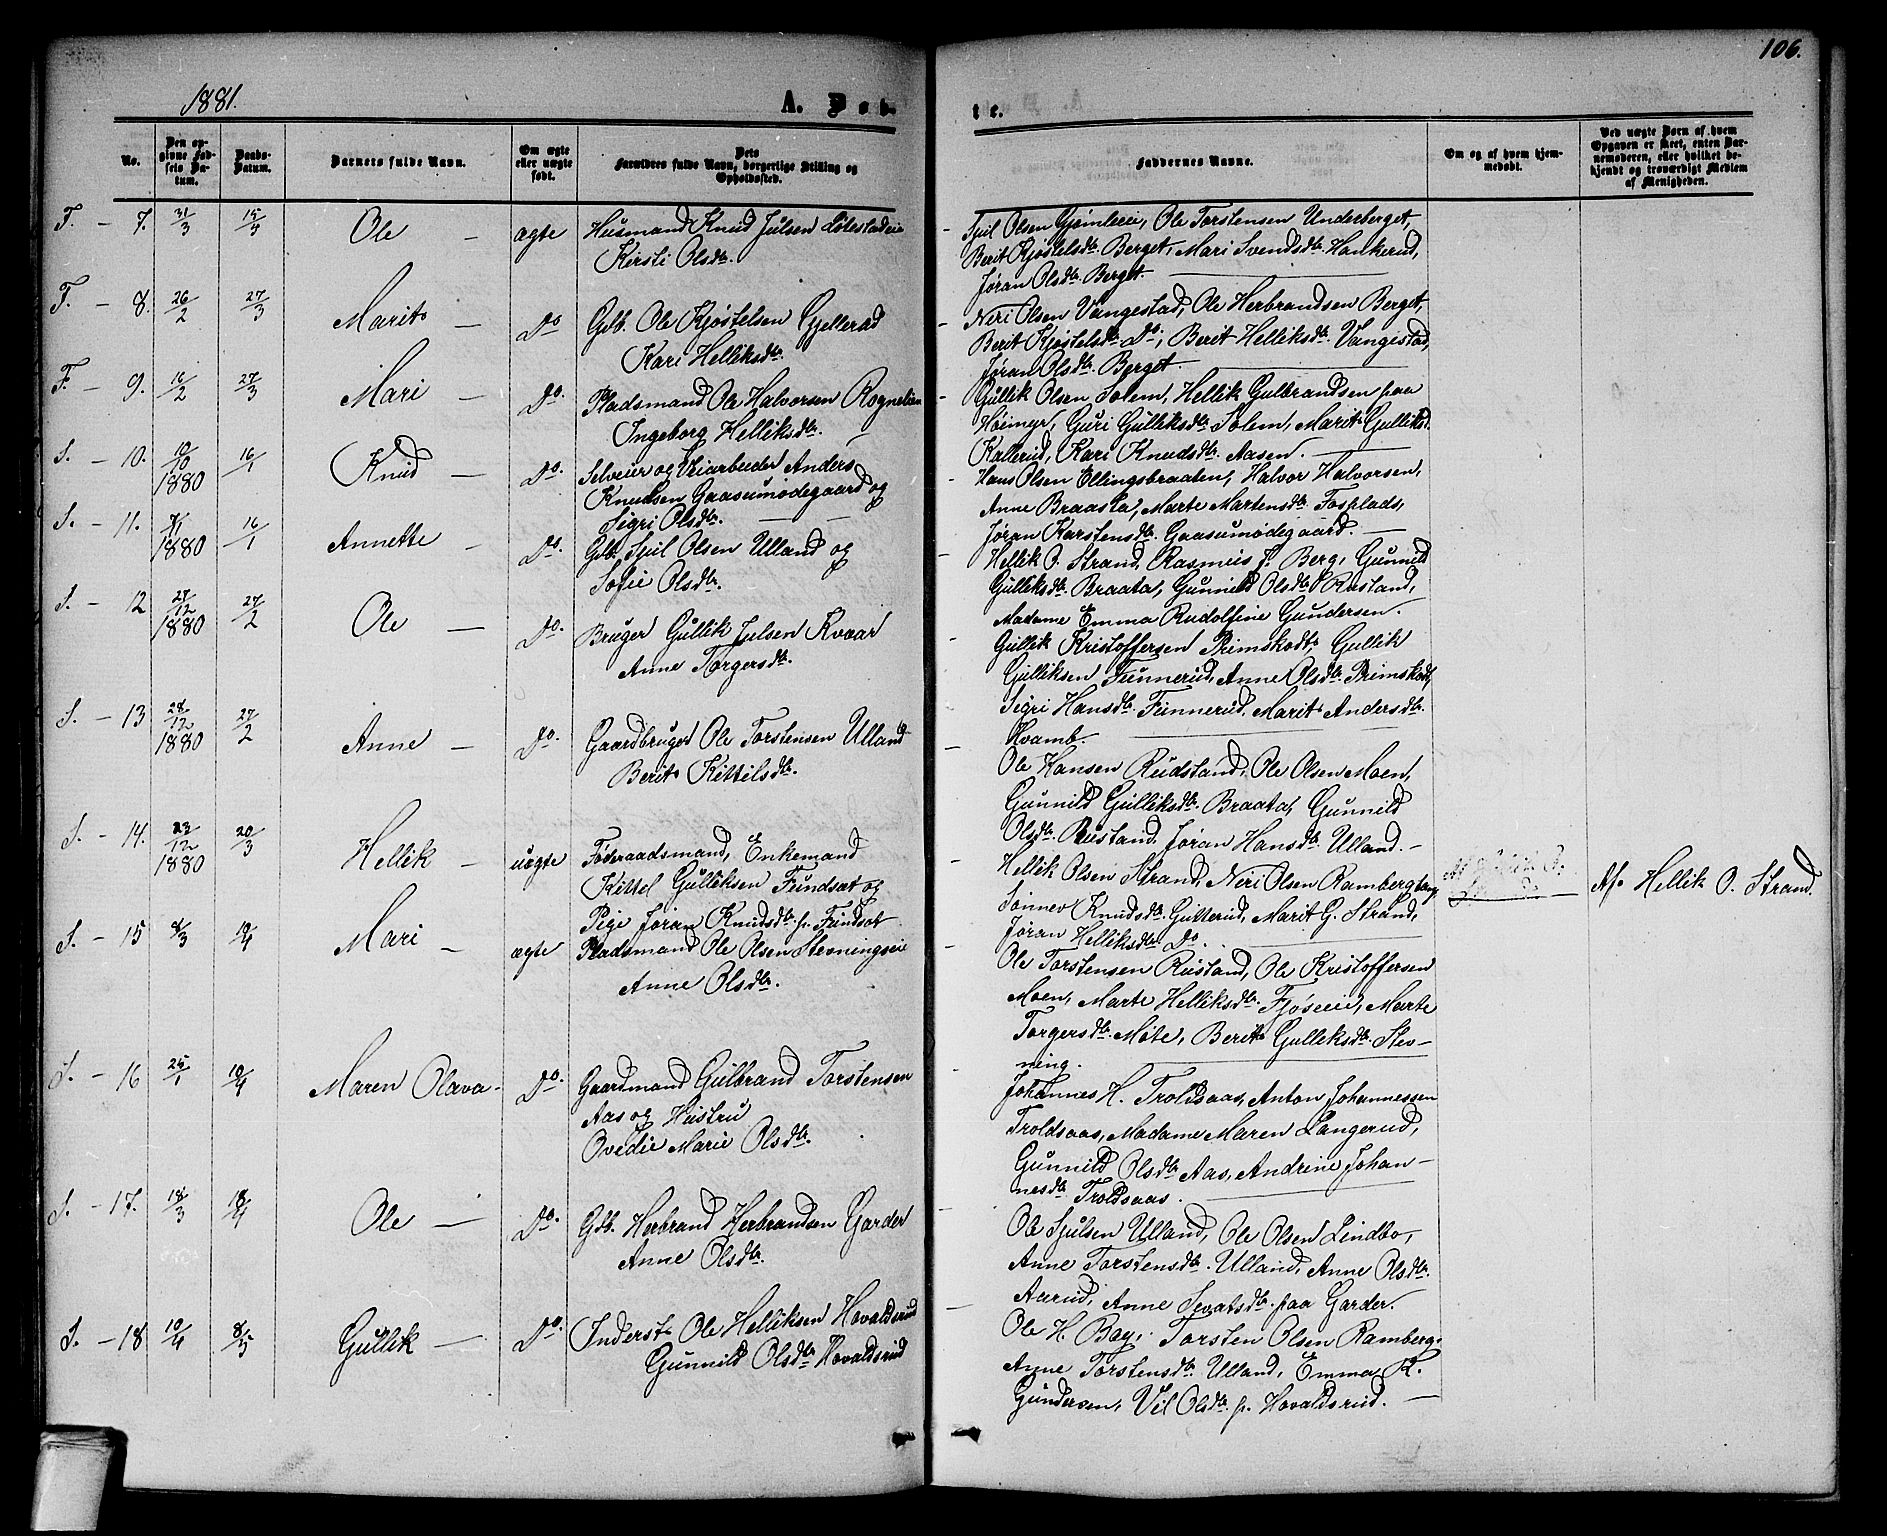 106.
1881.
A. Døb-
te.
No.
Den op-
givne Fød-
sels Da-
tum.
Daabs-
Datum.
Barnets fulde Navn.
Om ægte
eller uægte
født.
Dets
Forældres fulde Navn, borgerlige Stilling og
Opholdssted.
Faddernes Navne.
Om og af hvem hjem-
medøbt.
Ved uægte Børn af hvem
Opgaven er skeet, enten Bar-
nemoderen, eller hvilket be-
kjendt og troværdigt Medlem
af Menigheden.
F. - 7. 31/3 15/4 Ole - ægte Husmand Knud Julsen Lölestadeie
Kirsti Olsdtr.
Ole Torstensen Underberget,
Berit Kjøstelsdtr. Berget, Mari Svendsdtr. Hankerud,
Jøran Olsdtr. Berget.
F. - 8. 26/2 27/3 Marit - Do Gdb. Ole Kjøstelsen Gjellerud
Kari Helliksdtr.
Neri Olsen Vangestad, Ole Herbrandsen Berget,
Berit Kjøstelsdtr. Do, Berit Helliksdtr. Vangestad,
Jøran Olsdtr. Berget.
F. - 9. 16/2 27/3 Mari - Do. Pladsmand Ole Halvorsen Rognelien
Ingeborg Helliksdtr.
Gullik Olsen Solem, Hellik Gulbrandsen paa
Høimyr, Guri Gulliksdtr. Solem, Marit Gulliksd.
Kallerud, Kari Knudsdtr. Aasen.
S. - 10. 10/10 1880 16/1 Knud - Do. Selveier og Veiarbeider Anders
Knudsen Gaasumødegaard og
Sigri Olsdtr.
Hans Olsen Ellingsbraaten, Halvor Halvorsen,
Anne Braata, Marte Martensdtr. Fosplads,
Jøran Karstensdtr. Gaasumødegaard.
S. - 11. 1880 16/1 Annette - Do. Gdb. Sjul Olsen Ulland og
Sofie Olsdtr.
Hellik O. Strand, Rasmus J. Berg, Gunnild
Gulliksdtr. Braata, Gunnild Olsdtr. Rustand,
Madame Emma Rudolfine Gundersen.
S. - 12 27/12 1880 27/2 Ole - Do. Bruger Gullik Julsen Kvaar
Anne Torgersdtr.
Gullik Kristoffersen Primskodt, Gullik
Gulliksen Funnerud, Anne Olsdtr. Primskodt,
Sigri Hansdtr. Funnerud, Marit Andersdtr.
Hvamb.
S. - 13 28/12 1880 27/2 Anne - Do. Gaardbruger Ole Torstensen Ulland
Berit Kittilsdtr.
Ole Hansen Rudstand, Ole Olsen Moen,
Gunnild Gulliksdtr. Braata, Gunnild
Olsdtr. Rustand, Jøran Hansdtr. Ulland.
S. - 14. 23/12 1880 20/3 Hellik - uægte Føderaadsmand, Enkemand
Kittel Gulliksen Fundsæt og
Pige Jøran Knudsdtr. p. Fundsæt
Hellik Olsen Strand, Neri Olsen Rambergtang,
Sønnev Knudsdtr. Gutterud, Marit G. Strand,
Jøran Helliksdtr. Do.
Af Hellik O. Strand.
S. - 15 8/3 10/4 Mari - ægte Pladsmand Ole Olsen Stevningseie
Anne Olsdtr.
Ole Torstensen Rustand, Ole Kristoffersen
Moen, Marte Helliksdtr. Fjøseie, Marte
Torgersdtr. Møte, Berit Gulliksdtr. Stev-
ning.
S. - 16 25/1 10/4 Maren Olava - Do. Gaardmand Gulbrand Torstensen
Aas og Hustru
Ovedie Marie Olsdtr.
Johannes H. Troldsaas, Anton Johannessen
Troldsaas, Madame Maren Langerud,
Gunnild Olsdtr. Aas, Andrine Johan-
nesdtr. Troldsaas.
S. - 17. 18/3 18/4 Ole - Do. Gdb. Herbrand Herbrandsen Garder
Anne Olsdtr.
Ole Sjulsen Ulland, Ole Olsen Lindbo,
Anne Torstensdtr. Ulland, Anne Olsdtr.
Aarud, Anne Sevatsdtr. paa Garder.
S. - 18 10/4 8/5 Gullik - Do. Inderst Ole Helliksen Hovaldsrud
Gunnild Olsdtr. Hovaldsrud
Ole H. Bay, Torsten Olsen Ramberg,
Anne Torstensdtr. Ulland, Emma R.
Gundersen, Vil Olsdtr. p. Hovaldsrud.